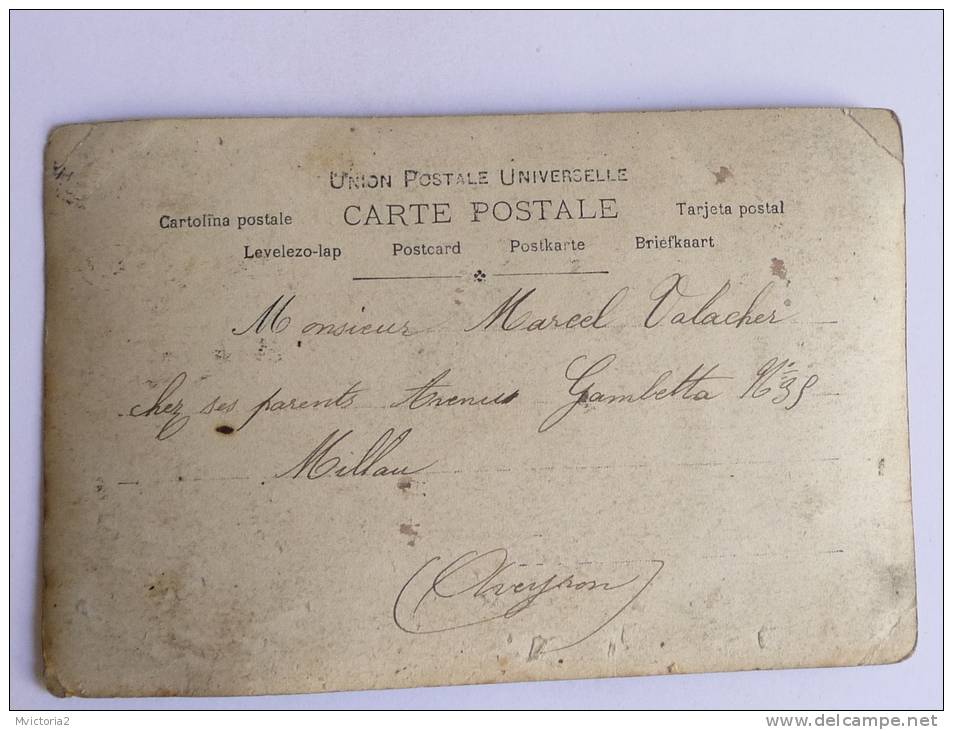 UNION POSTALE UNIVERSELLE
Cartolina postale CARTE POSTALE Tarjeta postal
Levelezo-lap Postcard Postkarte Briefkaart
Monsieur Marcel Valacher
chez ses parents Avenue Gambetta N° 35
Millau
(Aveyron)
Mvictoria2
www.delcampe.net